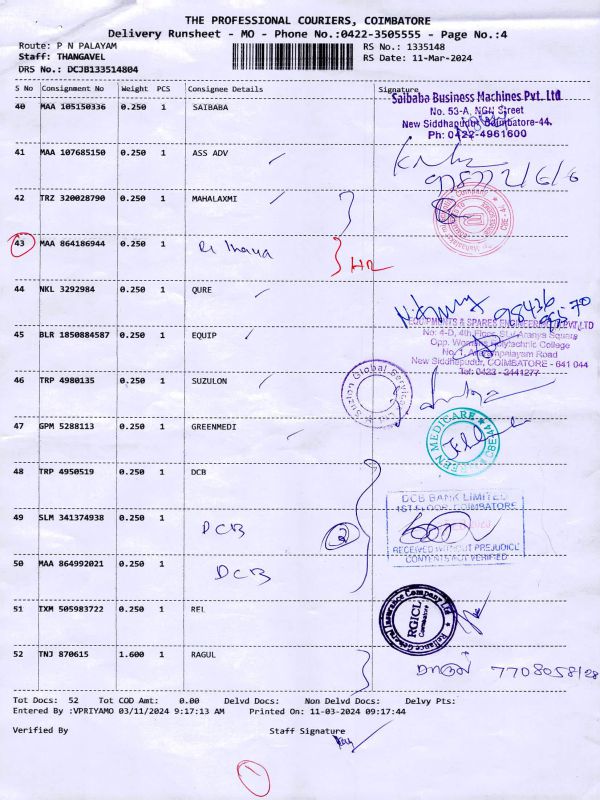 THE PROFESSIONAL COURIERS, COIMBATORE
Delivery Runsheet - MO - Phone No.:0422-3505555 - Page No.:4
Route: P N PALAYAM RS No.: 1335148
Staff: THANGAVEL RS Date: 11-Mar-2024
DRS No.: DCJB133514804
S No Consignment No Weight PCS Consignee Details Signature
40 MAA 105150336 0.250 1 SAIBABA
Saibaba Business Machines Pvt. Ltd
No. 53-A, NGN Street
New Siddhapudur, Coimbatore-44.
Ph: 0422-4961600
41 MAA 107685150 0.250 1 ASS ADV
42 TRZ 320028790 0.250 1 MAHALAXMI
43 MAA 864186944 0.250 1
HR
44 NKL 3292984 0.250 1 QURE
45 BLR 1850884587 0.250 1 EQUIP
EQUIPMENTS & SPARES ENGINEERING PVT LTD
No: 4-D, 4th Floor, Sri Aranya Square
Opp. Womens Polytechnic College
No.1, Avarampalayam Road
New Siddhapudur, COIMBATORE - 641 044
Tel: 0422 - 2441277
46 TRP 4980135 0.250 1 SUZULON
Suzlon Global Services
47 GPM 5288113 0.250 1 GREENMEDI
GREEN MEDICARE
48 TRP 4950519 0.250 1 DCB
49 SLM 341374938 0.250 1 DCB
2
DCB BANK LIMITED
1ST FLOOR, COIMBATORE
RECEIVED WITHOUT PREJUDICE
CONTENTS NOT VERIFIED
50 MAA 864992021 0.250 1 DCB
51 IXM 505983722 0.250 1 REL
Reliance General Insurance Company Ltd
RGICL
Coimbatore
52 TNJ 870615 1.600 1 RAGUL
7708058128
Tot Docs: 52 Tot COD Amt: 0.00 Delvd Docs: Non Delvd Docs: Delvy Pts:
Entered By :VPRIYAMO 03/11/2024 9:17:13 AM Printed On: 11-03-2024 09:17:44
Verified By Staff Signature
1